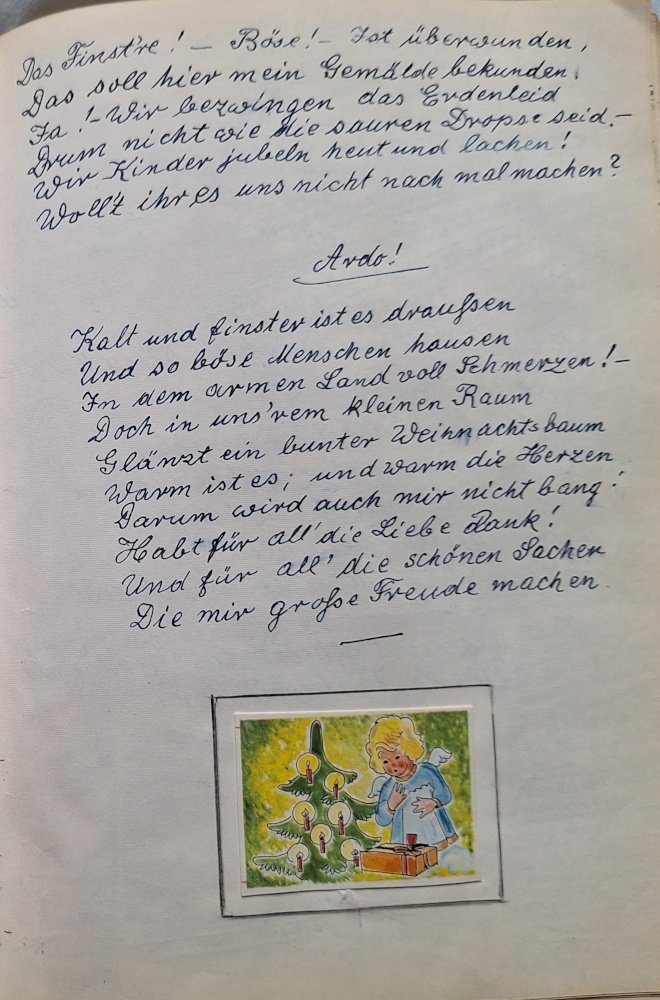 Das Finst're! – Böse! – Ist überwunden,
Das soll hier mein Gemälde bekunden.
Ja! – Wir bezwingen das Erdenleid
Drum nicht wie die sauren Dropse seid. –
Wir Kinder jubeln heut und lachen!
Wollt ihr es uns nicht nach mal machen?
Ardo!
Kalt und finster ist es draußen
Und so böse Menschen hausen
In dem armen Land voll Schmerzen! –
Doch in uns'rem kleinen Raum
Glänzt ein bunter Weihnachtsbaum
Warm ist es; und warm die Herzen
Darum wird auch mir nicht bang!
Habt für all' die Liebe Dank!
Und für all' die schönen Sachen
Die mir große Freude machen.